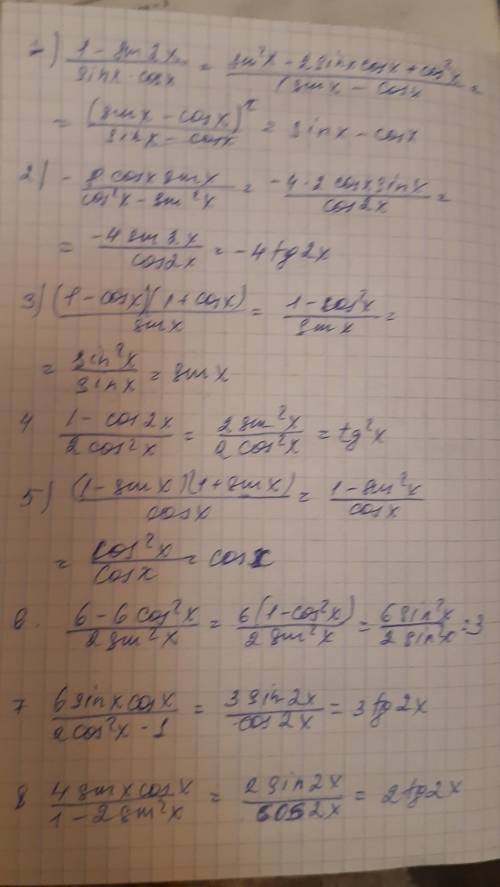 1) (1 - sin 2x)/(sinx · cosx) = (sin²x - 2sinx cosx + cos²x)/(sinx - cosx) =
= (sinx - cosx)²/(sinx - cosx) = sinx - cosx
2) - (8 cosx sinx)/(cos²x - sin²x) = (-4·2 cosx sinx)/(cos2x) =
= (-4 sin 2x)/(cos2x) = -4 tg2x
3) ((1 - cosx)(1 + cosx))/(sinx) = (1 - cos²x)/(sinx) =
= (sin²x)/(sinx) = sinx
4 (1 - cos2x)/(2cos²x) = (2sin²x)/(2cos²x) = tg²x
5) ((1 - sinx)(1 + sinx))/(cosx) = (1 - sin²x)/(cosx)
= (cos²x)/(cosx) = cosx
6. (6 - 6cos²x)/(2sin²x) = (6(1 - cos²x))/(2sin²x) = (6sin²x)/(2sin²x) = 3
7 (6sinx cosx)/(2cos²x - 1) = (3sin2x)/(cos2x) = 3tg2x
8 (4sinx cosx)/(1 - 2sin²x) = (2sin2x)/(cos2x) = 2tg2x